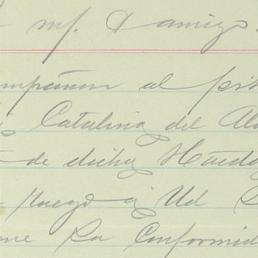 mf. Damigo.
ompañan al pri
Catalina del Al
de dicha Hacda
Ruego á Ud
me la Conformid